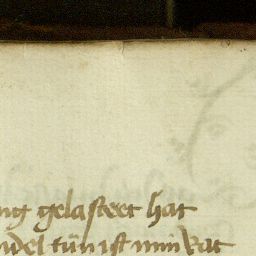 ng gelasteet hat
del tůn ist min Rat